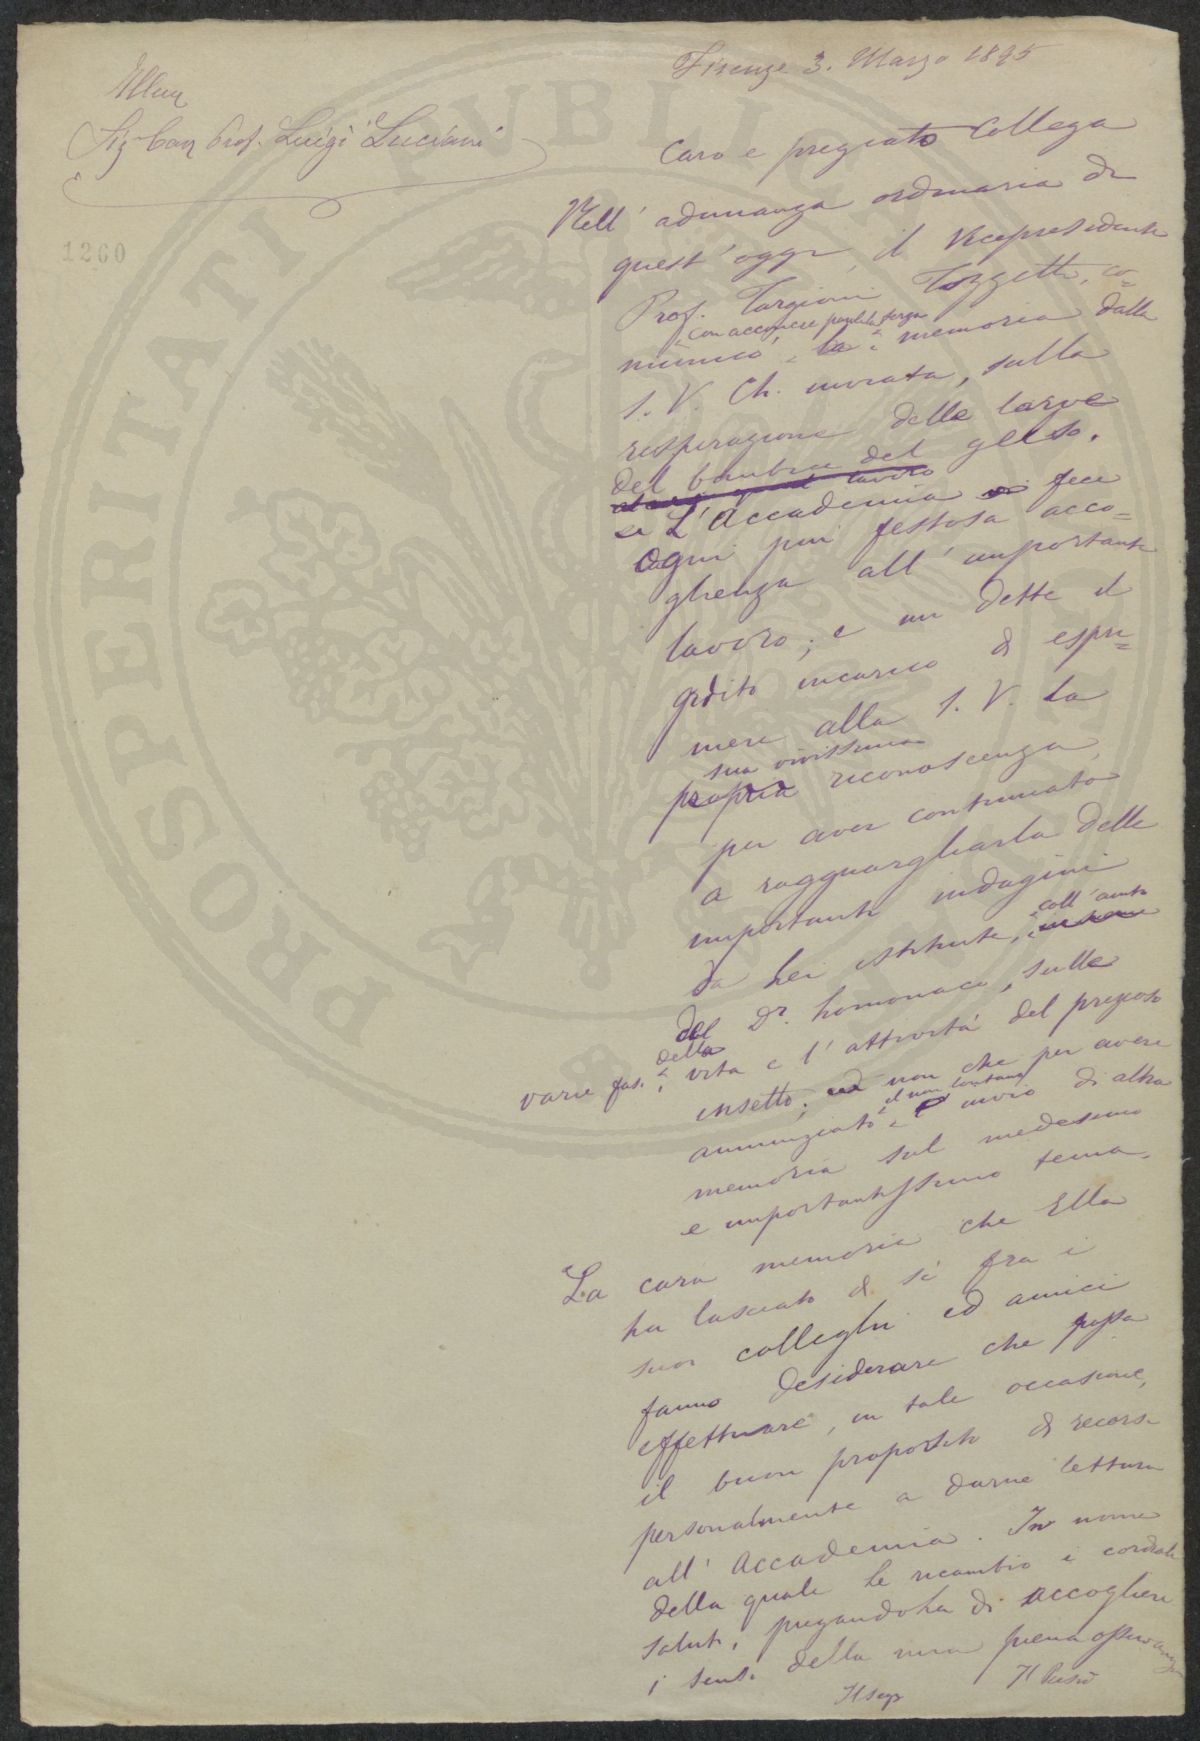 Firenze 3. Marzo 1895
Illmo
Sig Cav Prof. Luigi Luciani
1260
PROSPERITATI PVBLICAE
Caro e pregiato Collega
Nell' adunanza ordinaria di
quest' oggi, il Vicepresidente
Prof. Targioni Tozzetti, co=
con acconcie parole
municò la memoria dalla
S. V. Ch. inviata, sulla
respirazione delle larve
del bombice del gelso.
lavoro
L' Accademia fece
ogni più festosa acco=
glienza all' importante
lavoro; e mi dette il
gradito incarico di espri=
mere alla S. V. la
sua vivissima
propria riconoscenza,
per aver continuato
a ragguagliarla delle
importanti indagini
coll' aiuto
da Lei istituite, insieme
del Dr. Lomonaco, sulle
varie fasi della vita e l' attività del prezioso
insetto; non che per avere
il non lontano
annunziato l' invio di altra
memoria sul medesimo
e importantissimo tema.
La cara memoria che Ella
ha lasciato di sè fra i
suoi colleghi ed amici
fanno desiderare che possa
effettuare, in tale occasione,
il buon proposito di recarsi
personalmente a darne lettura
all' Accademia. In nome
della quale Le ricambio i cordiali
saluti, pregandola di accogliere
i sensi della mia piena osservanza
Il Segr
Il Presid